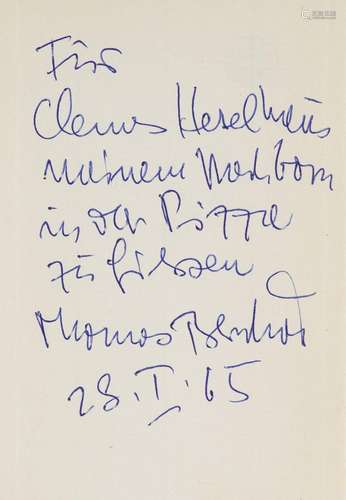 Für
Clemens Heselhaus
meinem Nachbarn
in der Pizza
zu Giessen
Thomas Bernhard
28. I. 65